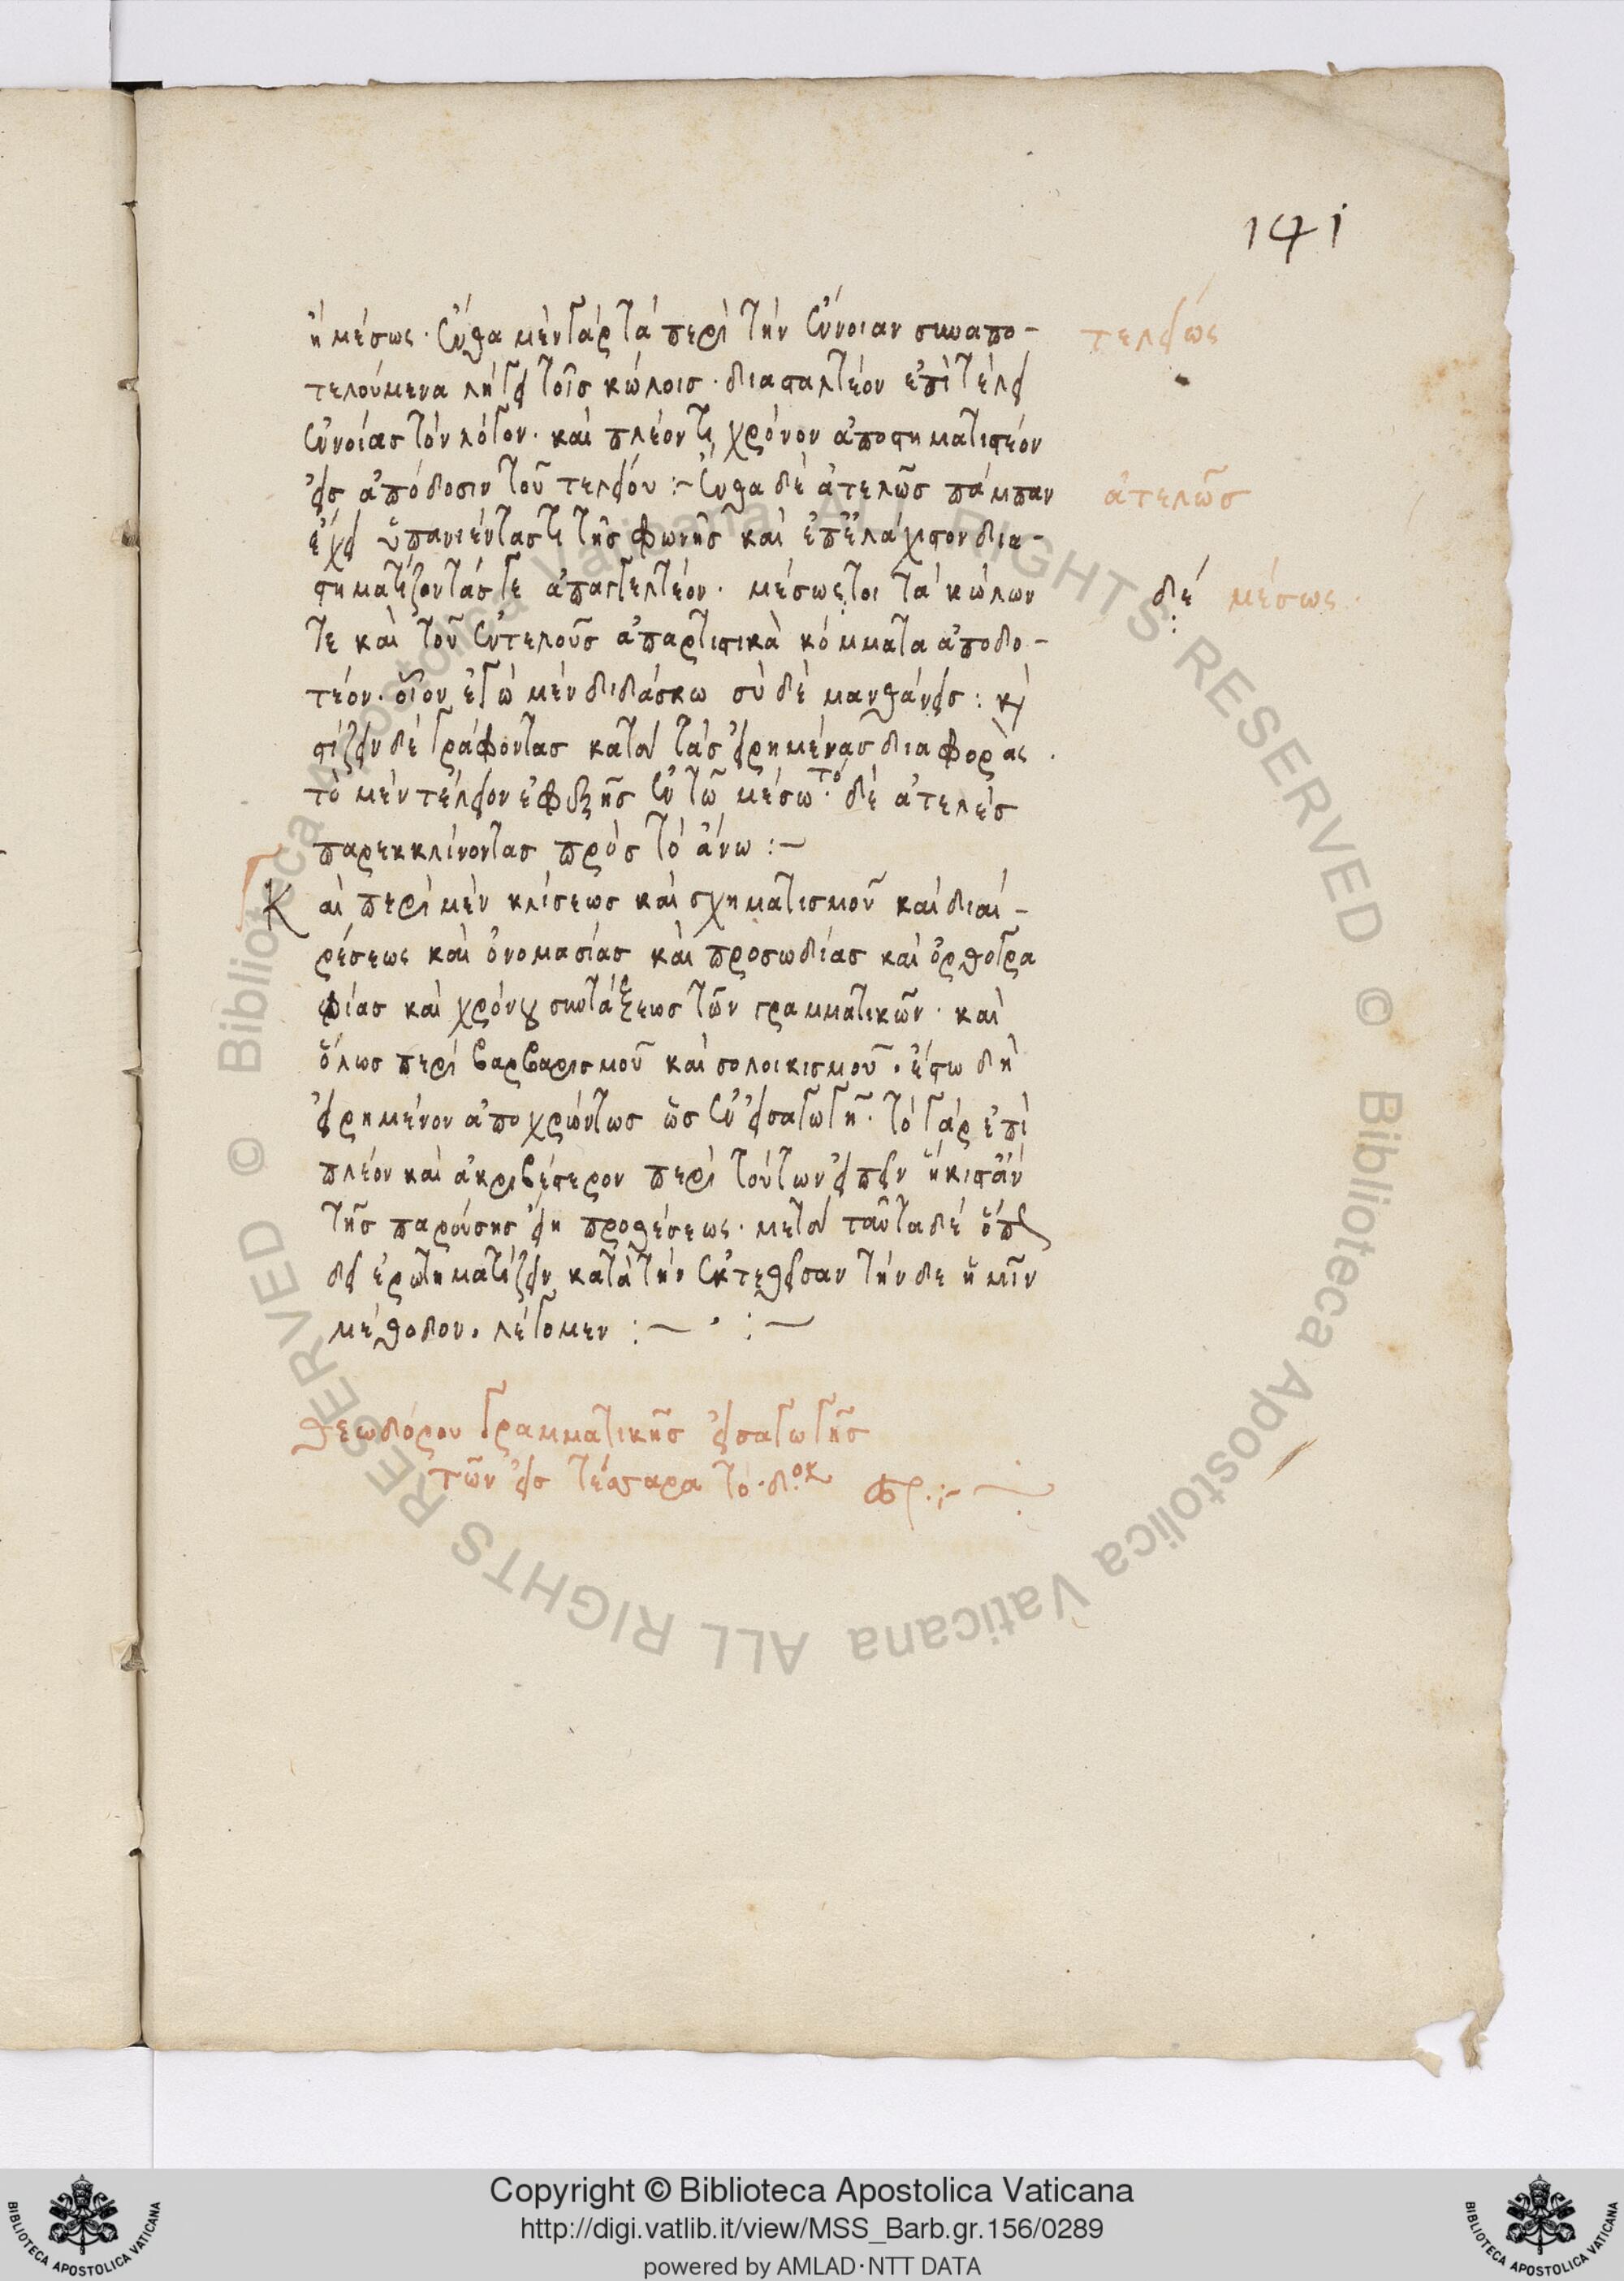 141
ἢ μέσως· ἔνθα μὲν γὰρ τὰ περὶ τὴν ἔννοιαν συναπο-
τελείως
τελούμενα λήγει τοῖς κώλοις· διασταλτέον ἐπὶ τέλει
ἐννοίας τὸν λόγον· καὶ πλέον τι χρόνον ἀποστηματιστέον
εἰς ἀπόδοσιν τοῦ τελείου :- ἔνθα δὲ ἀτελῶς πάμπαν
ἀτελῶς
ἔχει ὑπανιέντας τι τῆς φωνῆς καὶ ἐπ' ἐλάχιστον δια-
στηματίζοντάς τε ἀπαγγελτέον· μέσως τοι τὰ κώλων
δέ μέσως·
τε καὶ τοῦ ἐντελοῦς ἀπαρτιστικὰ κόμματα ἀποδο-
τέον· οἷον ἐγὼ μὲν διδάσκω σὺ δὲ μανθάνεις : καὶ
στίζειν δὲ γράφοντας κατὰ τὰς εἰρημένας διαφοράς·
τὸ μὲν τέλειον ἐφεξῆς ἐν τῷ μέσω· τὸ δὲ ἀτελὲς
παρεκκλίνοντας πρὸς τὸ ἄνω :-
Καὶ περὶ μὲν κλίσεως καὶ σχηματισμοῦ καὶ διαι-
ρέσεως καὶ ὀνομασίας καὶ προσωδίας καὶ ὀρθογρα
φίας καὶ χρόνου συντάξεως τῶν γραμματικῶν· καὶ
ὅλως περὶ βαρβαρισμοῦ καὶ σολοικισμοῦ· ἔστω δὴ
εἰρημένον ἀποχρώντως ὡς ἐν εἰσαγωγῇ· τὸ γὰρ ἐπὶ
πλέον καὶ ἀκριβέστερον περὶ τούτων εἰπεῖν ἥκιστ' ἂν
τῆς παρούσης εἴη προθέσεως· μετὰ ταῦτα δὲ ὅπως
δεῖ ἐρωτηματίζειν κατὰ τὴν ἐκτεθεῖσαν τήνδε ἡμῖν
μέθοδον· λέγομεν :- · :-
Θεωδόρου γραμματικῆς εἰσαγωγῆς
τῶν εἰς τέσσαρα τὸ·
Copyright © Biblioteca Apostolica Vaticana
http://digi.vatlib.it/view/MSS_Barb.gr.156/0289
powered by AMLAD·NTT DATA
BIBLIOTECA APOSTOLICA VATICANA
BIBLIOTECA APOSTOLICA VATICANA
© Biblioteca Apostolica Vaticana ALL RIGHTS RESERVED © Biblioteca Apostolica Vaticana ALL RIGHTS RESERVED